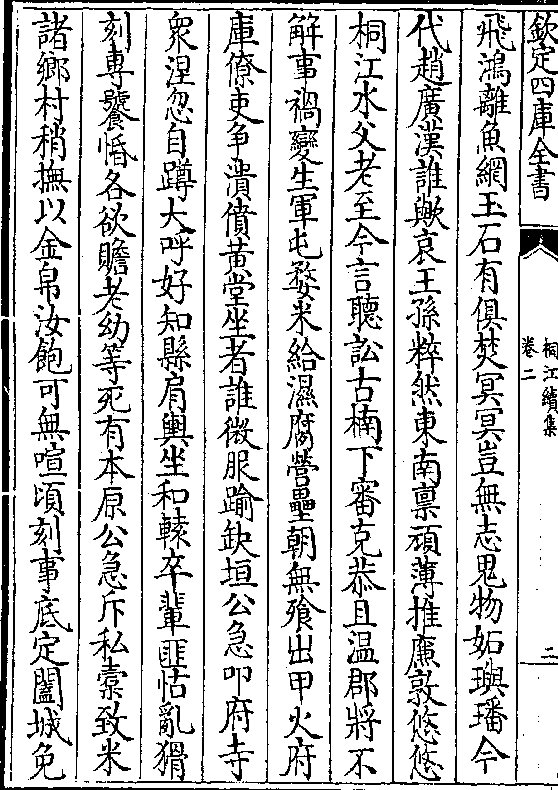 欽定四庫全書
桐江續集
卷二
二
飛鴻離魚網玉石有俱焚冥冥豈無志鬼物妬璵璠今
代趙廣漢誰歟哀王孫粹然東南禀頑薄推廉敦悠悠
桐江水父老至今言聽訟古楠下審克恭且温郡將不
解事禍變生軍屯婺米給濕腐營壘朝無飱出甲火府
庫僚吏争潰僨黄堂坐者誰微服踰缺垣公急叩府寺
衆涅忽自蹲大呼好知縣肩輿坐和轅卒輩匪怙亂猾
刻專饕惛各欲贍老幼等死有本原公急斥私橐致米
諸鄉村稍撫以金帛汝飽可無喧頃刻事底定闔城免